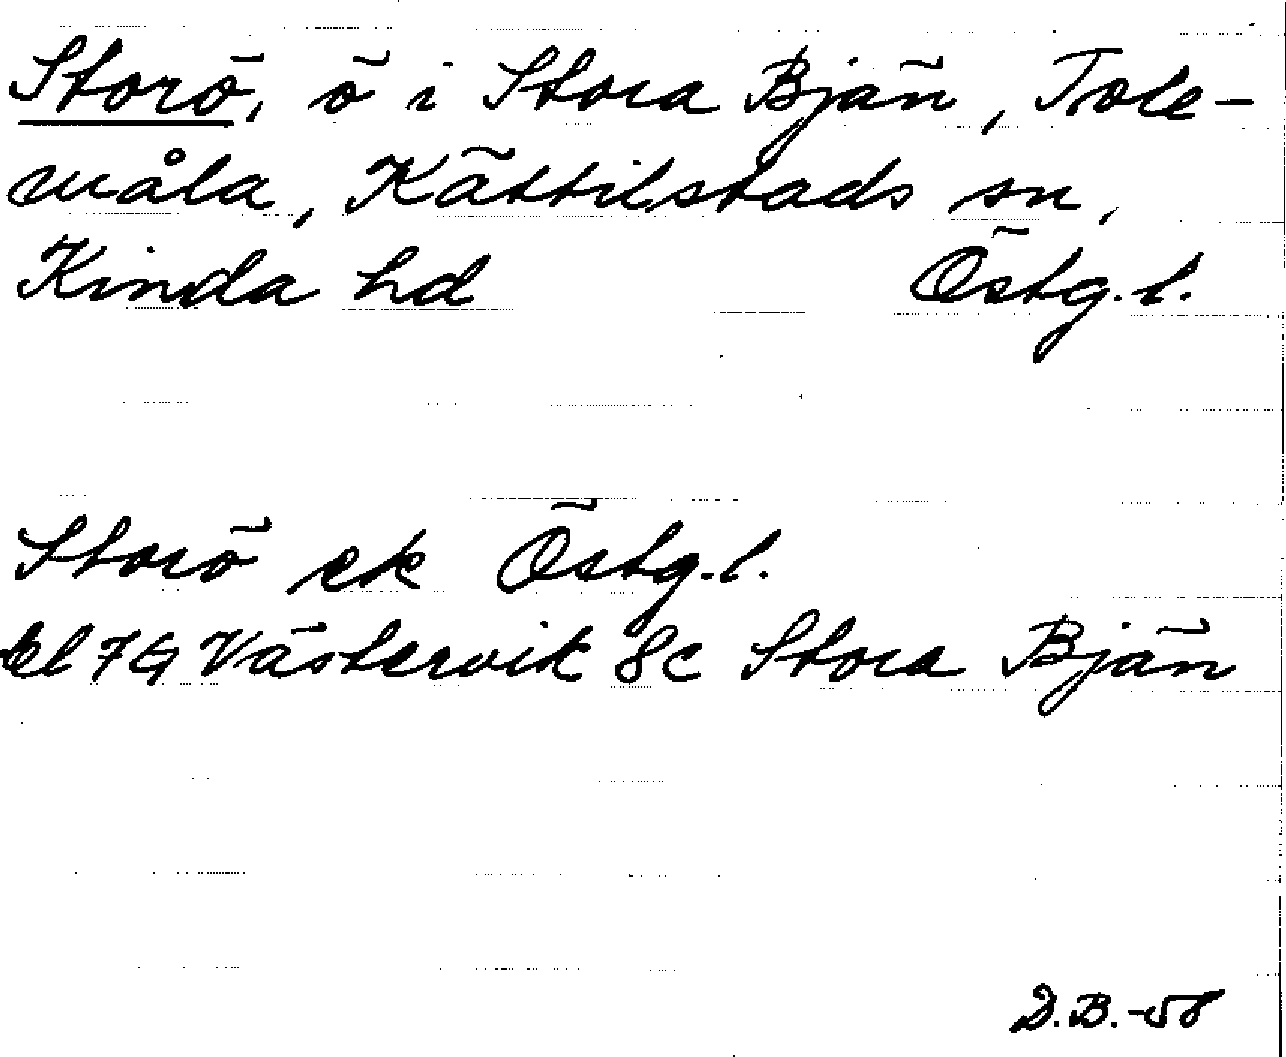 Storö, ö i Stora Bjän, Tole-
måla, Kättilstads sn,
Kinda hd Östg.l.
Storö ek Östg.l.
bl 7G Västervik 8c Stora Bjän
D.B.-58